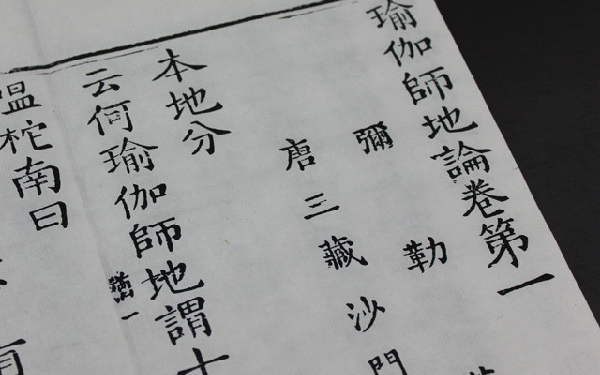 瑜伽師地論卷第一
彌勒
唐三藏沙門
本地分
云何瑜伽師地謂十
嗢柁南曰